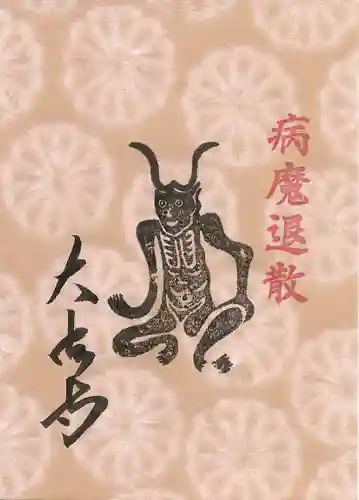 病魔退散
大吉寺